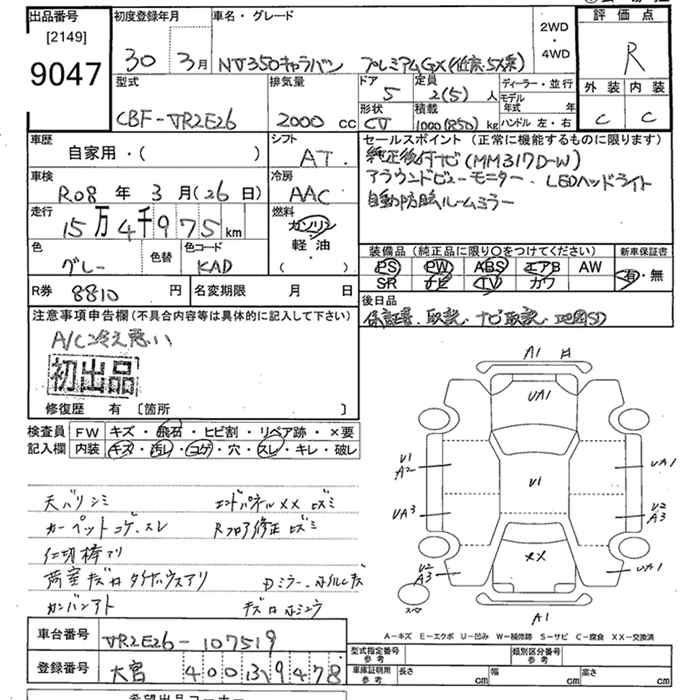 出品番号
[2149]
9047
初度登録年月
30年3月
車名・グレード
NV350キャラバン プレミアムGX(低床.5ドア)
2WD
・
4WD
評価点
R
外装 内装
C C
型式
CBF-VR2E26
排気量
2000 cc
ドア
5
定員
2(5)人
形状
CV
積載
1000(850)kg
ディーラー・並行
モデル年式 年
ハンドル 左・右
車歴
自家用・( )
シフト
AT
車検
R08年3月(26日)
冷房
AAC
走行
15万4千975km
燃料
ガソリン
軽油
( )
色
グレー
色替
色コード
KAD
R券 8810円
名変期限 月 日
セールスポイント(正常に機能するものに限ります)
純正後付ナビ(MM317D-W)
アラウンドビューモニター.LEDヘッドライト
自動防眩ルームミラー
装備品(純正品に限り○をつけてください)
PS PW ABS エアB AW
SR ナビ TV カワ
新車保証書
有・無
後日品
保証書.取説.ナビ取説.地図SD
注意事項申告欄(不具合内容等は具体的に記入して下さい)
A/C冷え悪い
初出品
修復歴 有 〔箇所 〕
検査員記入欄
FW キズ・飛石・ヒビ割・リペア跡・×要
内装 キズ・汚レ・コゲ・穴・スレ・キレ・破レ
天バリシミ
エンドパネルXXロズミ
カーペットコゲ.スレ
Rフロア修正ロズミ
仁切棒アリ
荷室キズロ
カンバンアト
A1
UA1
U1
A2
U1
UA1
UA3
U2
A3
XX
U2
A3
UA1
スペア
A1
A-キズ E-エクボ U-凹み W-補修跡 S-サビ C-腐食 XX-交換済
車台番号
VR2E26-107519
登録番号
大宮 400 そ 9478
型式指定番号 参考
類別区分番号 参考
車庫証明用 参考
長さ cm
幅 cm
高さ cm
希望出品コーナー